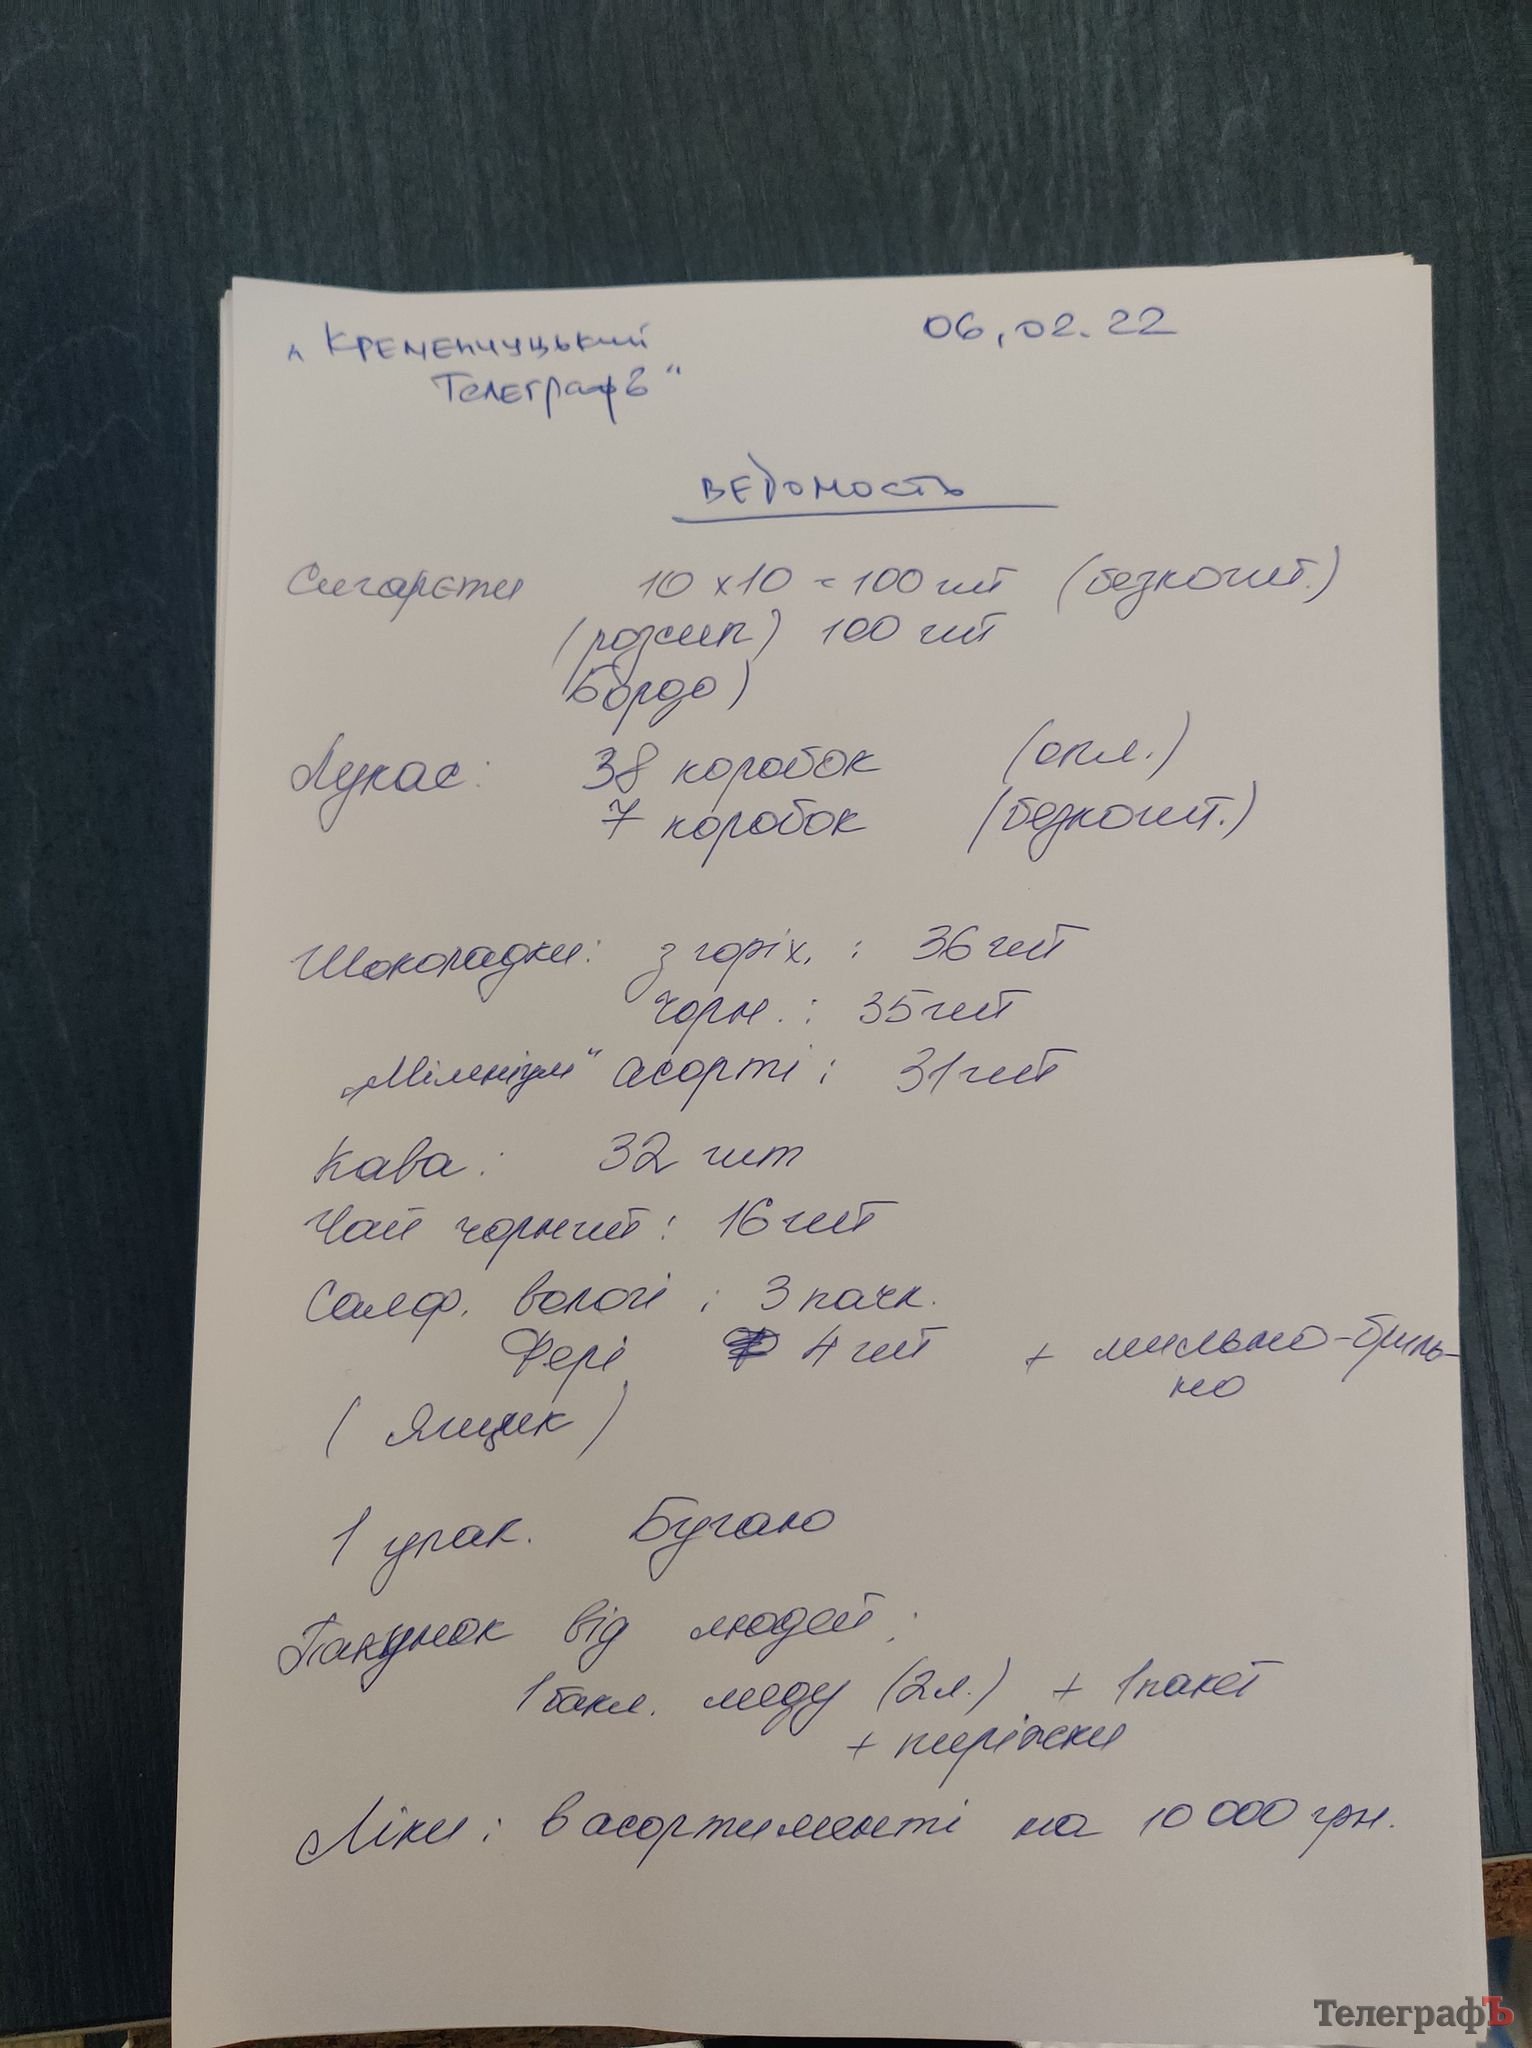 „Кременчуцький 06.02.22
ТелеграфЪ"
ВЕДОМОСТЬ
Сигарети 10 x 10 = 100 шт (безкошт.)
(розсип) 100 шт
Бордо)
Лукас: 38 коробок (опл.)
7 коробок (безкошт.)
Шоколадки: з горіх. : 36 шт
чорн. : 35 шт
„Міленіум" асорті : 31 шт
Кава: 32 шт
Чай чорний: 16 шт
Салф. вологі : 3 пачк.
Фері 4 шт + мильно-риль-
но
(Ящик)
1 упак. Бугаю
Пакунок від людей:
1 бакл. меду (2л.) + 1 пакет
+ пиріжки
Ліки: в асортименті на 10 000 грн.
ТелеграфЪ